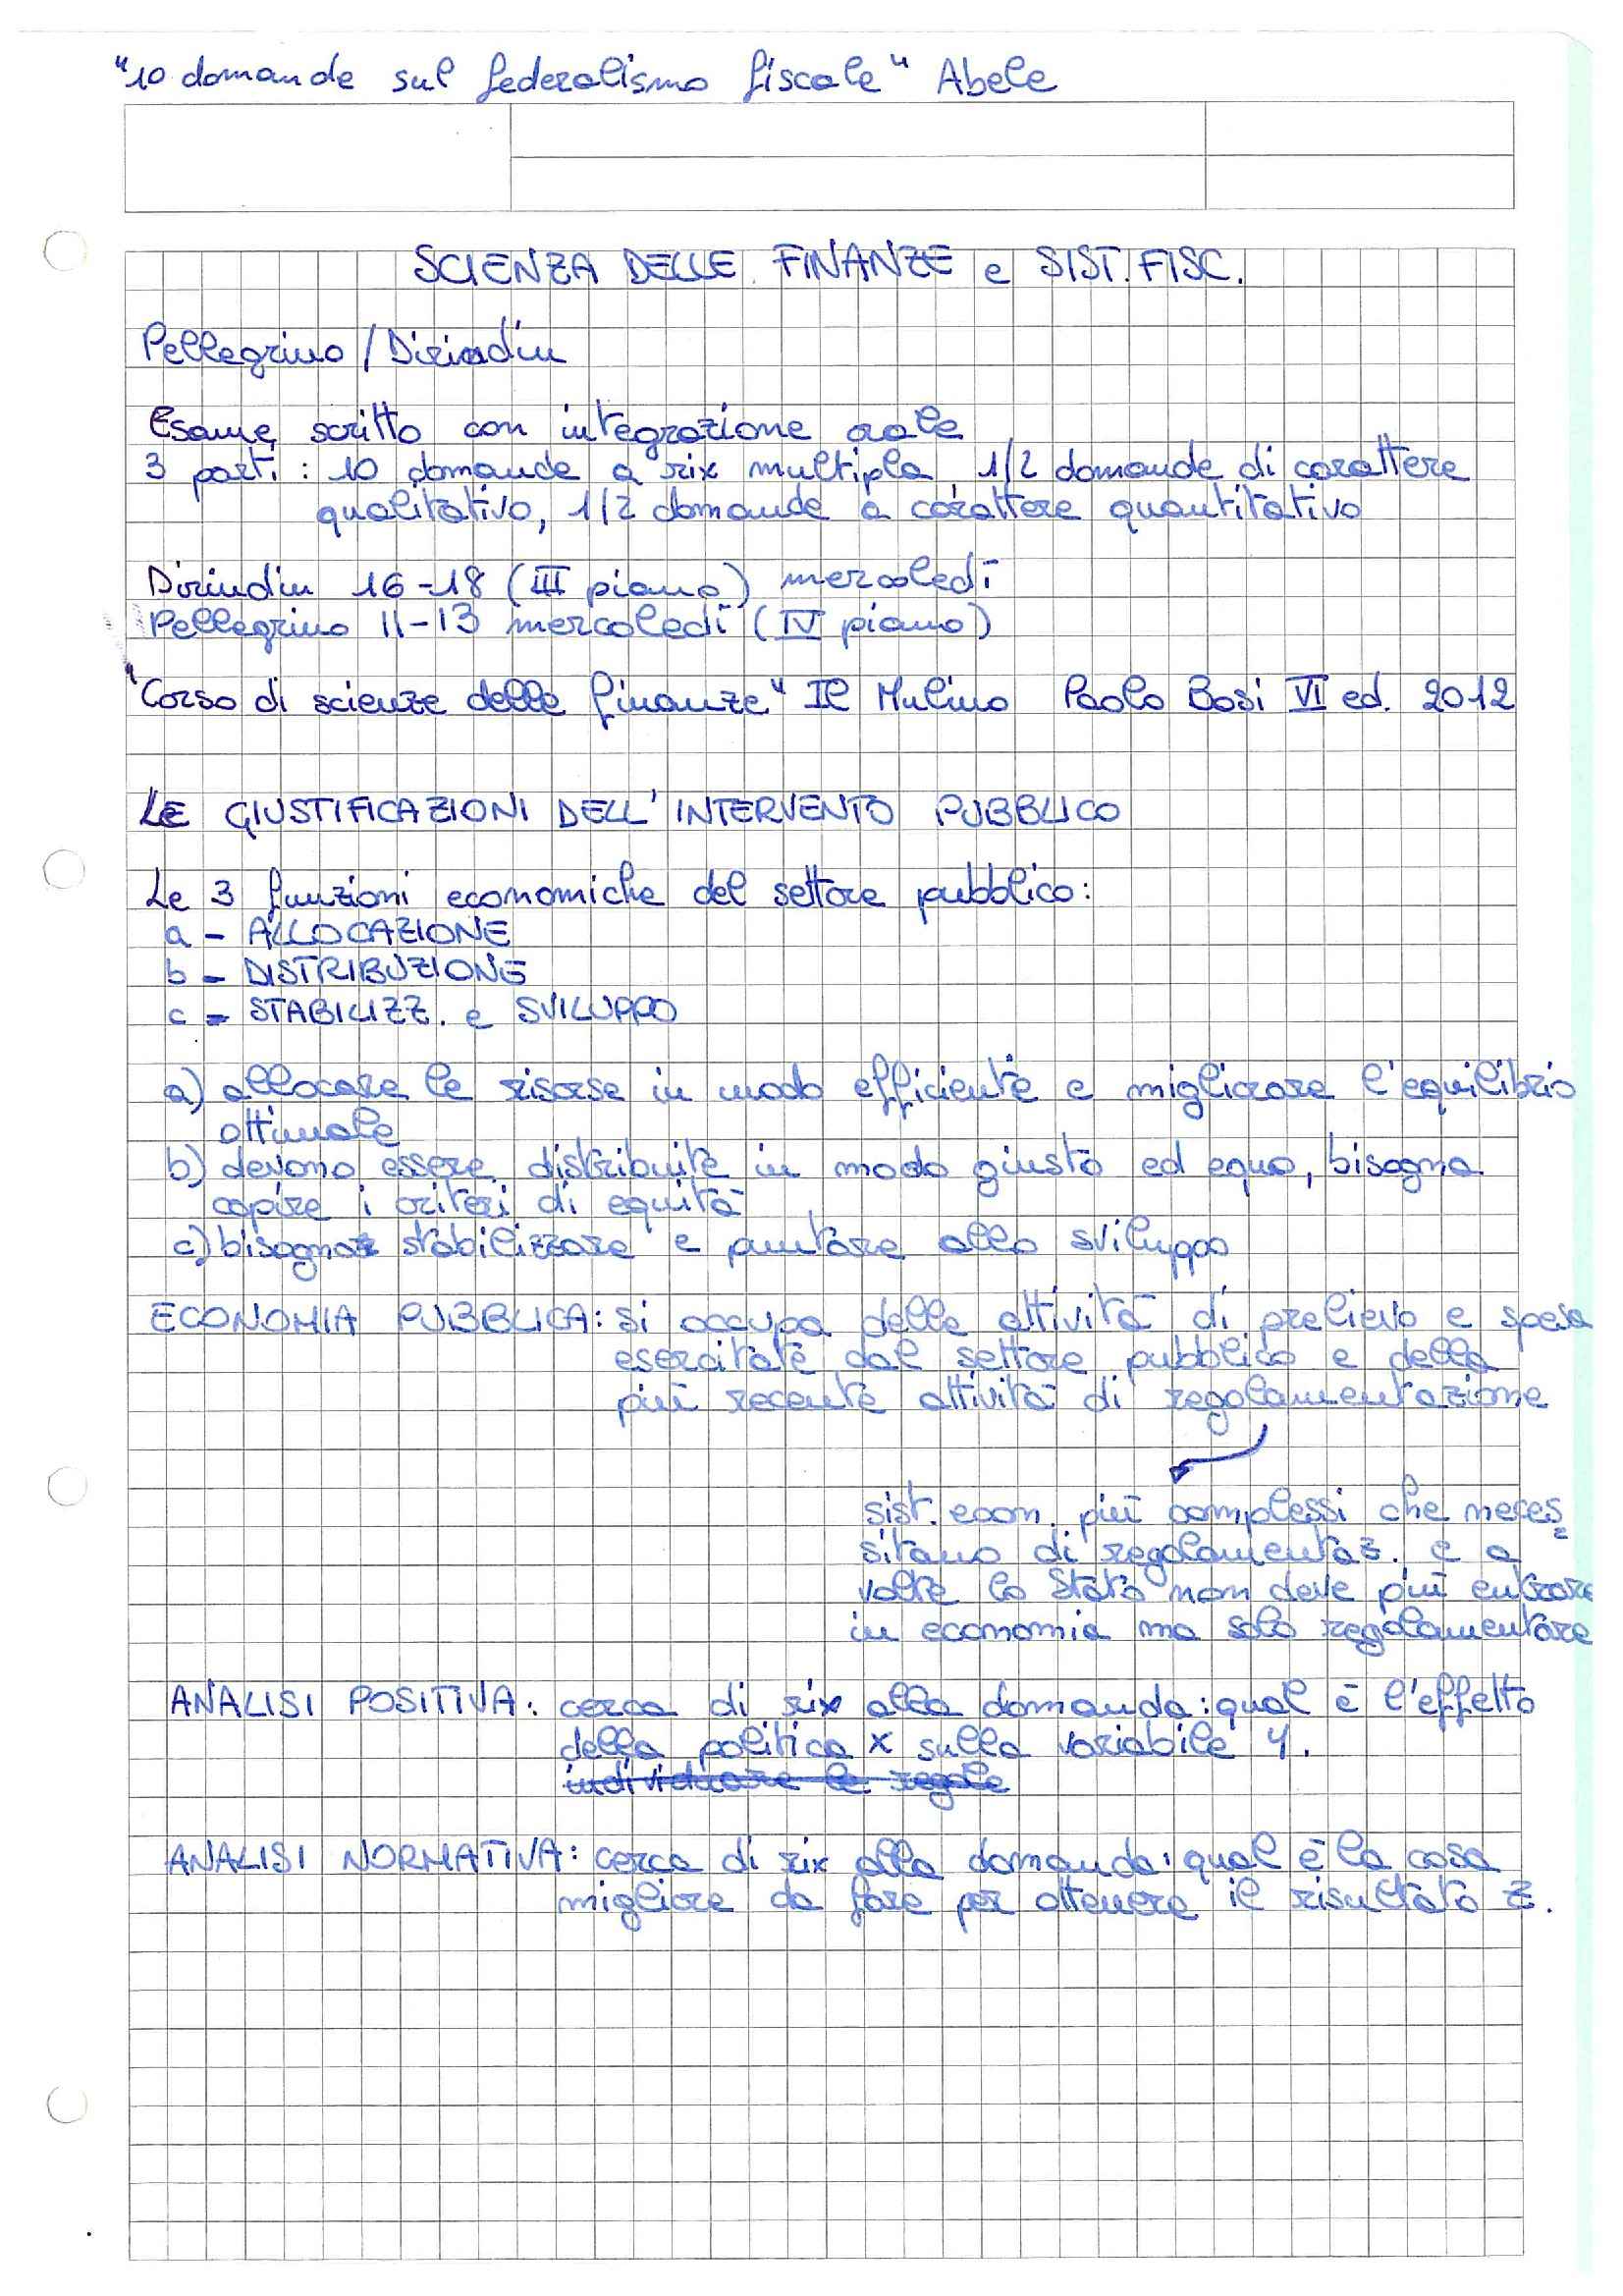 "10 domande sul federalismo fiscale" Abele
SCIENZA DELLE FINANZE e SIST. FISC.
Pellegrino / Dirindin
Esame scritto con integrazione orale
3 parti: 10 domande a rix multipla 1/2 domande di carattere
qualitativo, 1/2 domande a carattere quantitativo
Dirindin 16-18 (III piano) mercoledì
Pellegrino 11-13 mercoledì (IV piano)
"Corso di scienze delle finanze" Il Mulino Paolo Bosi VI ed. 2012
LE GIUSTIFICAZIONI DELL'INTERVENTO PUBBLICO
Le 3 funzioni economiche del settore pubblico:
a - ALLOCAZIONE
b - DISTRIBUZIONE
c - STABILIZZ. e SVILUPPO
a) allocare le risorse in modo efficiente e migliorare l'equilibrio
ottimale
b) devono essere distribuite in modo giusto ed equo, bisogna
capire i criteri di equità
c) bisogna stabilizzare e puntare allo sviluppo
ECONOMIA PUBBLICA: si occupa delle attività di prelievo e spesa
esercitate dal settore pubblico e della
più recente attività di regolamentazione
sist. econ. più complessi che neces=
sitano di regolamentaz. e a
volte lo Stato non deve più entrare
in economia ma solo regolamentare
ANALISI POSITIVA: cerca di rix alla domanda: qual è l'effetto
della politica x sulla variabile y.
individuare le regole
ANALISI NORMATIVA: cerca di rix alla domanda: qual è la cosa
migliore da fare per ottenere il risultato z.